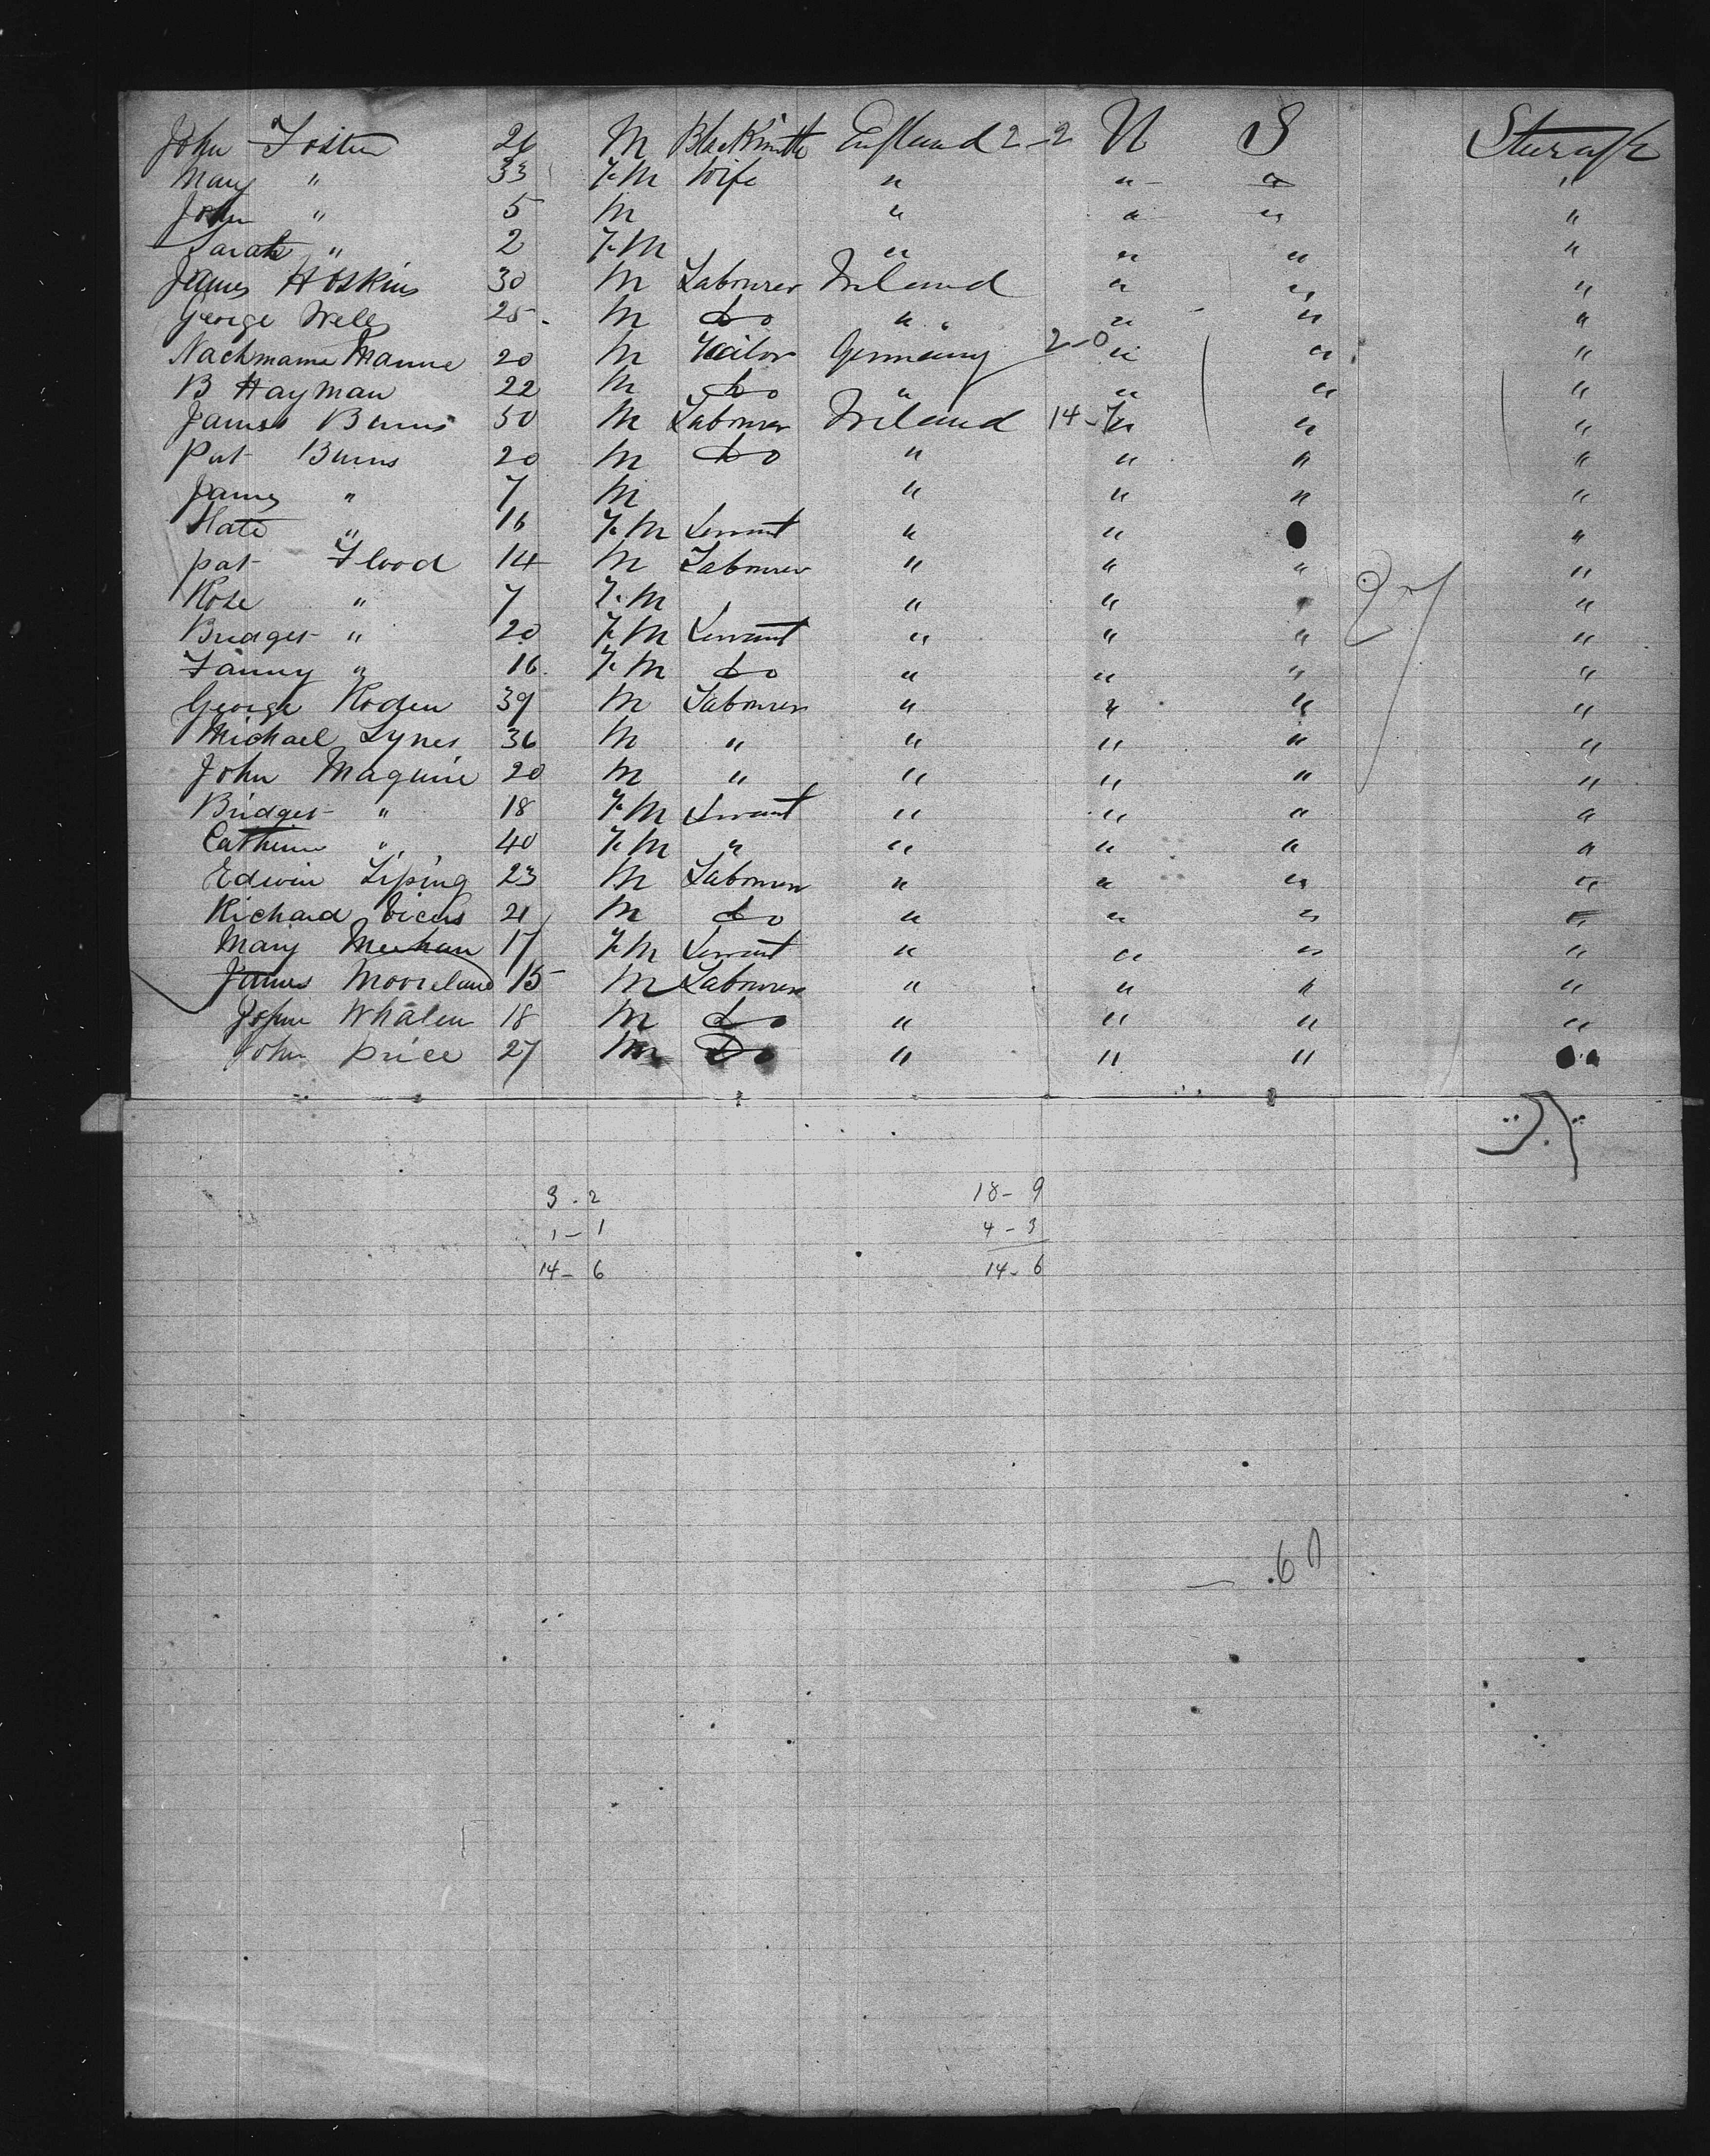 John Foster 26 M Blacksmith England 2-2 U S Steerage
Mary " 33 F.M Wife " " " "
John " 5 M " " " "
Sarah " 2 F.M " " " "
James Hoskins 30 M Labourer Ireland " " "
George Wells 25 M do " " " "
Nachmame Manne 20 M Tailor Germany 2-0 " " "
B Hayman 22 M do " " " "
James Burns 50 M Labourer Ireland 14-7 " " "
Pat Burns 20 M do " " " "
James " 7 M " " " "
Kate " 16 F.M Servant " " "
Pat Flood 14 M Labourer " " " "
Rose " 7 F.M " " " "
Bridget " 20 F.M Servant " " " "
Fanny " 16 F.M do " " " "
George Roden 39 M Labourer " " " "
Michael Lynes 36 M " " " " "
John Maguire 20 M " " " " "
Bridget " 18 F.M Servant " " " "
Catherine " 40 F.M " " " " "
Edwin 23 M Labourer " " " "
Richard 21 M do " " " "
Mary Meehan 17 F.M Servant " " " "
James Mooreland 15 M Labourer " " " "
John Whalen 18 M do " " " "
John Price 27 M Do " " " "
27
3-2 18-9
1-1 4-3
14-6 14-6
60